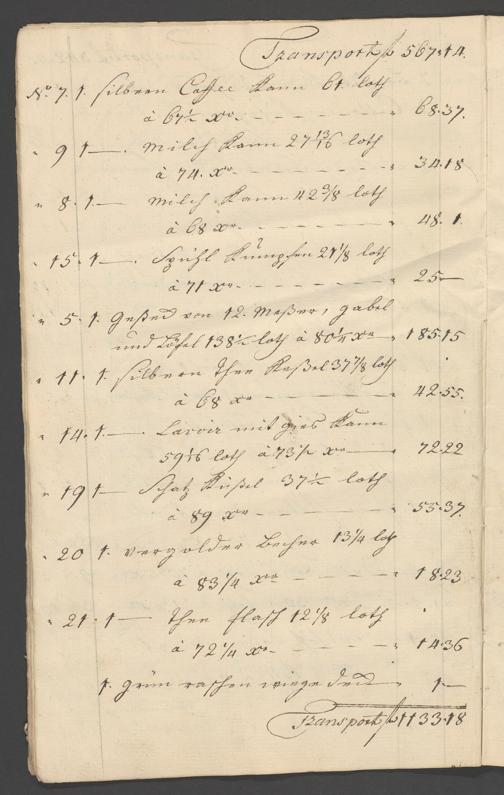 Transport f 567.14.
No. 7. 1. silbern Coffee Kann 61. loth
à 67½ xr. " 68.37.
" 9 1 — . Milch Kann 27 13/16 loth
à 74. xr. " 34.18
" 8. 1. — Milch Kann 42 3/8 loth
à 68 xr. " 48. 1.
" 15. 1 — . Spühl Kümpfen 21 1/8 loth
à 71 xr. " 25 —
" 5. 1. von 12. Meßer, gabel
und Löfel 138½ loth à 80¼ xr " 185.15
" 11. 1. silbern Thee Keßel 37 7/8 loth
à 68 xr " 42.55.
" 14. 1. — . Lavoir mit gies Kann
59 1/16 loth à 73½ xr " 72.22
" 19 1 — 37½ loth
à 89 xr " 55.37.
" 20 1. vergolder Becher 13¼ loth
à 83¼ xr " 18.23
" 21. 1 — Thee flasch 12 1/8 loth
à 72¼ xr. " 14.36
1. grün raschen wiege deck " 1. —
Transport f 1133.18